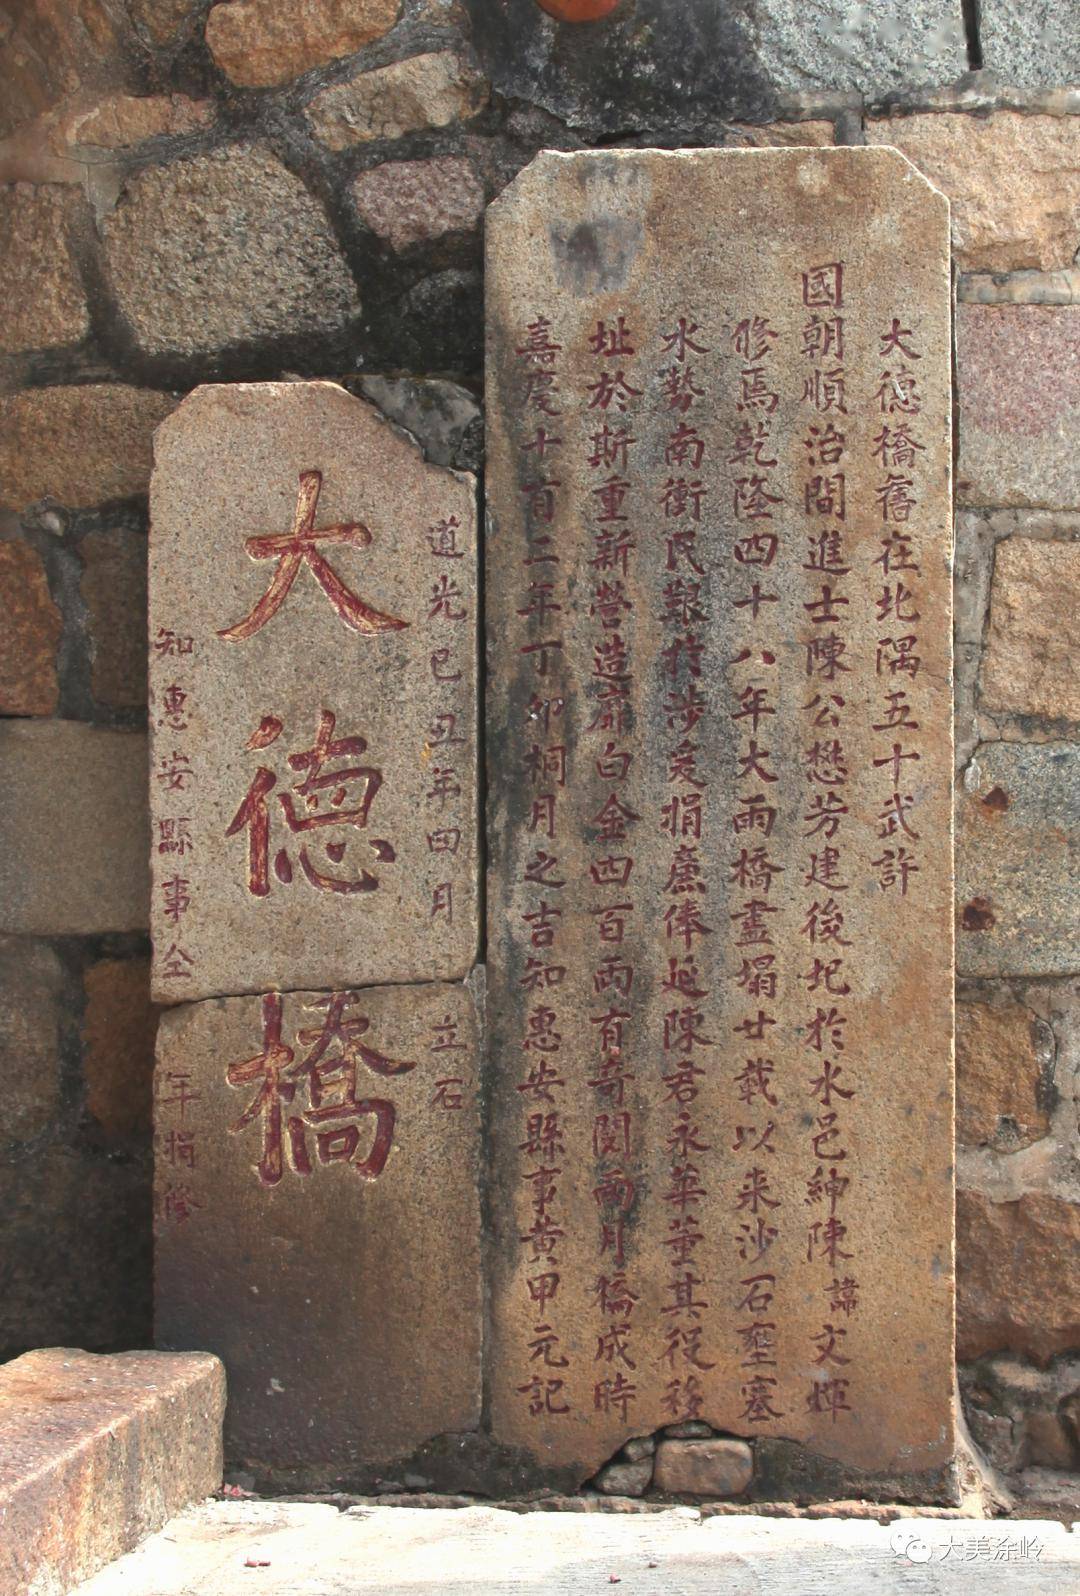 大德橋舊在北隅五十武許
國朝順治間進士陳公懋芳建後圮於水邑紳陳諱文煇
修焉乾隆四十八年大雨橋盡塌廿載以来沙石壅塞
水勢南衝民艱於涉爰捐廉俸延陳君永華董其役移
址於斯重新營造靡白金四百両有奇閱両月橋成時
嘉慶十有二年丁卯桐月之吉知惠安縣事黄甲元記
道光己丑年四月 立石
大德橋
知惠安縣事仝 年捐修
大美涂岭